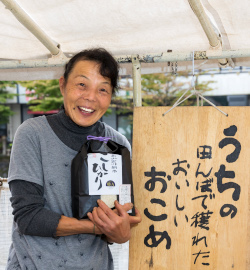 うちの
田んぼで獲れた
おいしい
おこめ
こしひかり